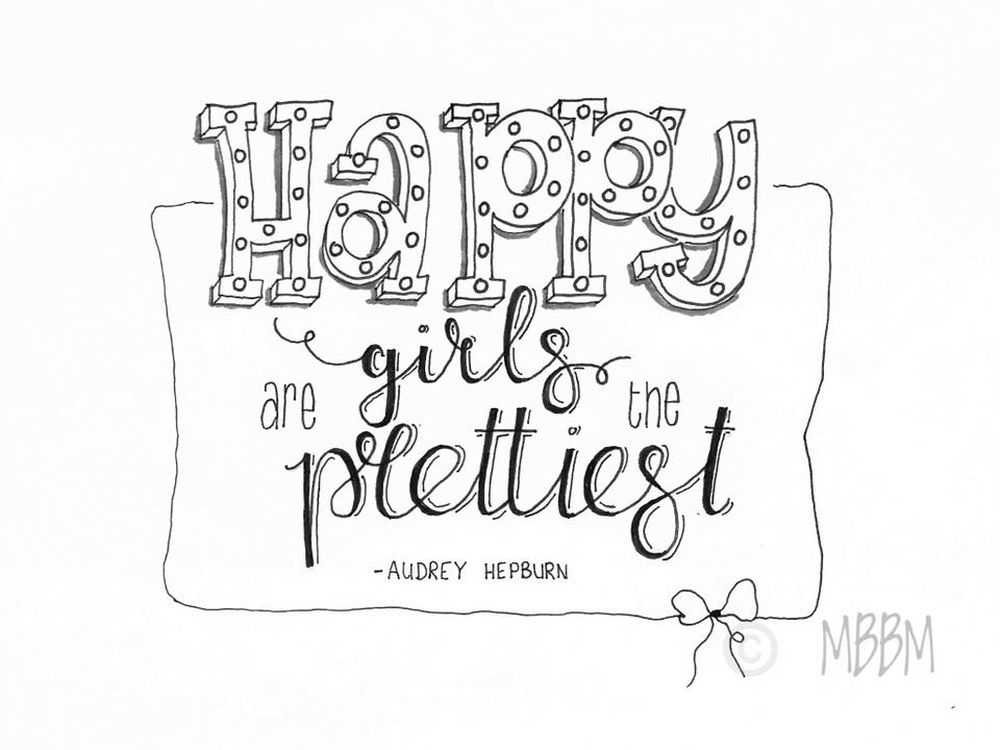 Happy
girls
are the
prettiest
-AUDREY HEPBURN
© MBBM